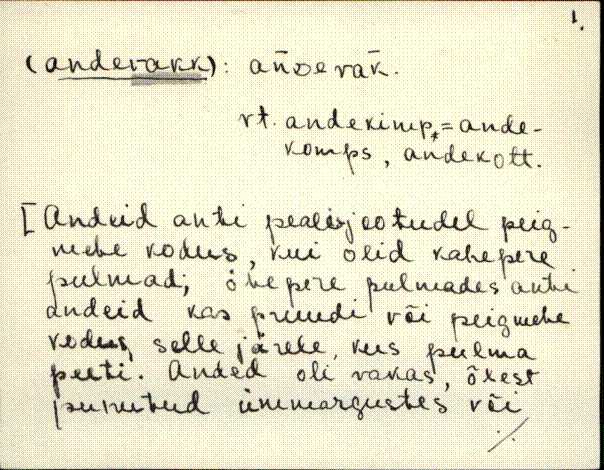 1.
(andevakk): añdevak̄.
vt. andekimp,* = ande-
komps, andekott.
[Andeid anti pealejootudel peig-
mehe kodus, kui olid kahepere
pulmad; ühepere pulmades anti
andeid kas pruudi või peigmehe
kodus, selle järele, kus pulma
peeti. Anded oli vakas, õlest
punutud ümmargustes või
./.